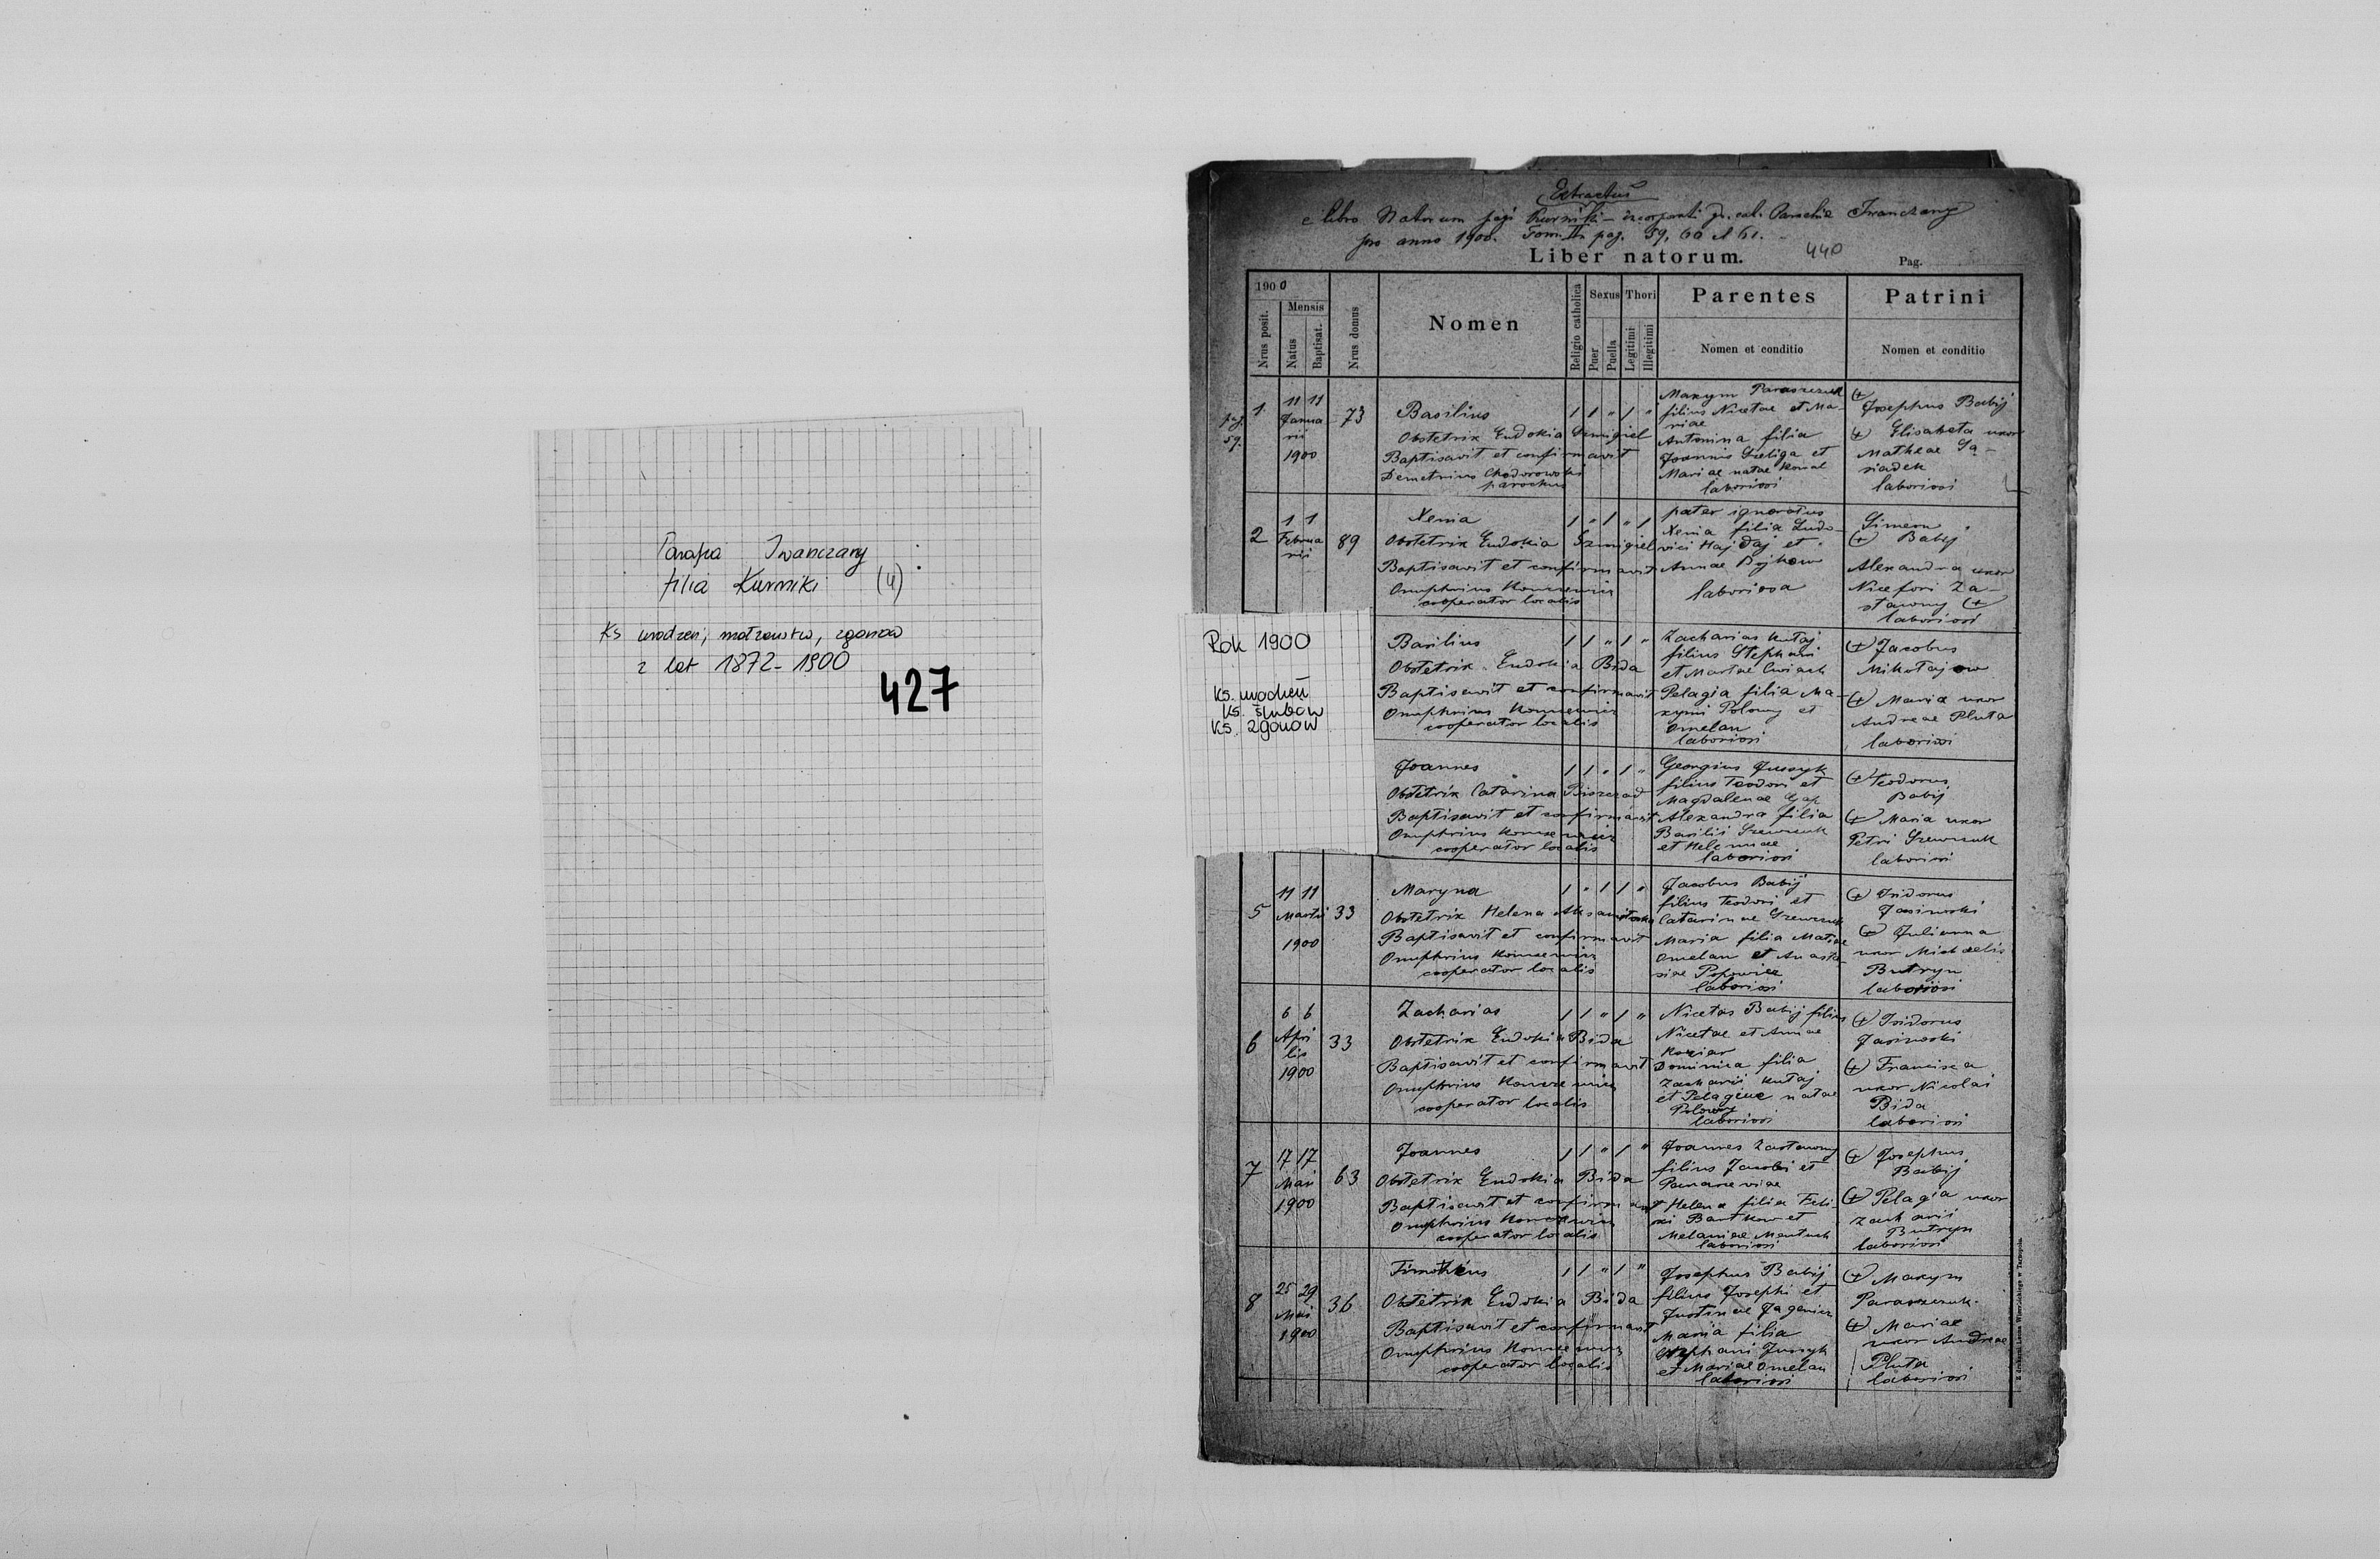 Parafia Iwanczany :
filia Kurniki (4)
Ks urodzeń, małżeństw, zgonów
z lat 1872-1900
427
Rok 1900
Ks. urodzeń
Ks. ślubów
Ks. zgonów
Extractus
e libro Natorum pagi Kurniki gr. cat. Parochiae Iwanczany
pro anno 1900. Tom. II. pag. 59, 60 et 61.
Liber natorum.
440
Pag.
1900
Nrus posit.
Mensis
Natus
Baptisat.
Nrus domus
Nomen
Religio catholica
Sexus
Puer
Puella
Thori
Legitimi
Illegitimi
Parentes
Nomen et conditio
Patrini
Nomen et conditio
pag. 59.
1
11 11
Janua
rii
1900
73
Basilius
Obstetrix Eudokia Szmigiel
Baptisavit et confirmavit
Demetrius Chodorowski
parochus
1 1 " 1 "
Maxym Paraszczuk
filius Nicetae et Ma-
riae
Antonina filia
Joannis Szeliga et
Mariae natae Kowal
laboriosi
Josephus Babij
Elisabeta uxor
Matheae Są-
siadek
laboriosi
2
1 1
Februa
rii
89
Xenia
Obstetrix Eudokia Szmigiel
Baptisavit et confirmavit
Onuphrius
cooperator localis
1 " 1 " 1
pater ignoratus
Xenia filia Ludo-
vici Hajdaj et
Annae
laboriosa
Simeon
Babij
Alexandra uxor
Nicefori Za-
stawny
laboriosi
Basilius
Obstetrix Eudokia Bida
Baptisavit et confirmavit
Onuphrius
cooperator localis
1 1 " 1 "
Zacharias Kutaj
filius Stephani
et Martae
Pelagia filia Ma-
xymi Polowy et
Omelan
laboriosi
Jacobus
Mikołajow
Maria uxor
Andreae Pluta
laboriosi
Joannes
Obstetrix Catarina
Baptisavit et confirmavit
Onuphrius
cooperator localis
1 1 " 1 "
Georgius Jussyk
filius Teodori et
Magdalenae
Alexandra filia
Basilii Szewczuk
et Helenae
laboriosi
Teodorus
Babij
Maria uxor
Petri Szewczuk
laboriosi
5
11 11
Martii
1900
33
Maryna
Obstetrix Helena
Baptisavit et confirmavit
Onuphrius
cooperator localis
1 " 1 1 "
Jacobus Babij
filius Teodori et
Catarinae Szewczuk
Maria filia Matiae
Omelan et Anasta-
siae Popowicz
laboriosi
Isidorus
Jasinski
Julianna
uxor Michaelis
Butryn
laboriosi
6
6 6
Apri
lis
1900
33
Zacharias
Obstetrix Eudokia Bida
Baptisavit et confirmavit
Onuphrius
cooperator localis
1 1 " 1 "
Nicetas Babij filius
Nicetae et Annae
Koziar
Dominica filia
Zacharii Kutaj
et Pelagiae natae
Polowy
laboriosi
Isidorus
Jasinski
Francisca
uxor Nicolai
Bida
laboriosi
7
17 17
Maii
1900
63
Joannes
Obstetrix Eudokia Bida
Baptisavit et confirmavit
Onuphrius
cooperator localis
1 1 " 1 "
Joannes Zastawny
filius Jacobi et
Helena filia
Bartkow et
Melaniae
laboriosi
Josephus
Babij
Pelagia uxor
Zacharii
Butryn
laboriosi
8
25 29
Maii
1900
36
Timotheus
Obstetrix Eudokia Bida
Baptisavit et confirmavit
Onuphrius
cooperator localis
1 1 " 1 "
Josephus Babij
filius Josephi et
Justinae
Maria filia
Stephani Jussyk
et Mariae Omelan
laboriosi
Maxym
Paraszczuk
Mariae
uxor Andreae
Pluta
laboriosi